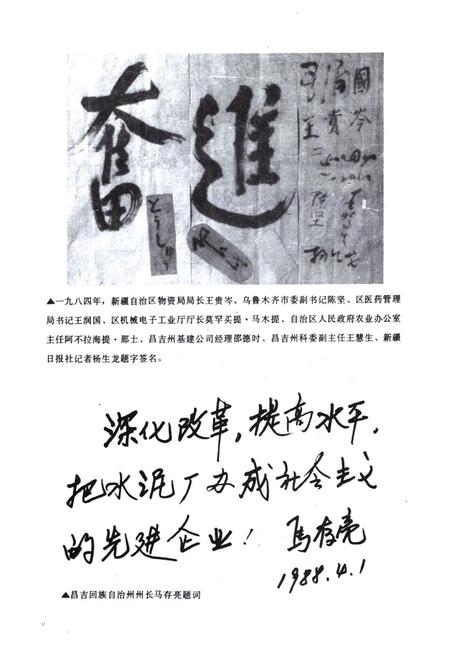 奮進
▲一九八四年，新疆自治区物资局局长王贵岑、乌鲁木齐市委副书记陈坚、区医药管理
局书记王润国、区机械电子工业厅厅长莫罕买提·马木提、自治区人民政府农业办公室
主任阿不拉海提·那士、昌吉州基建公司经理邵德时、昌吉州科委副主任王慧生、新疆
日报社记者杨生龙题字签名。
深化改革，提高水平，
把水泥厂办成社会主义
的先进企业！ 马存亮
1988.4.1
▲昌吉回族自治州州长马存亮题词